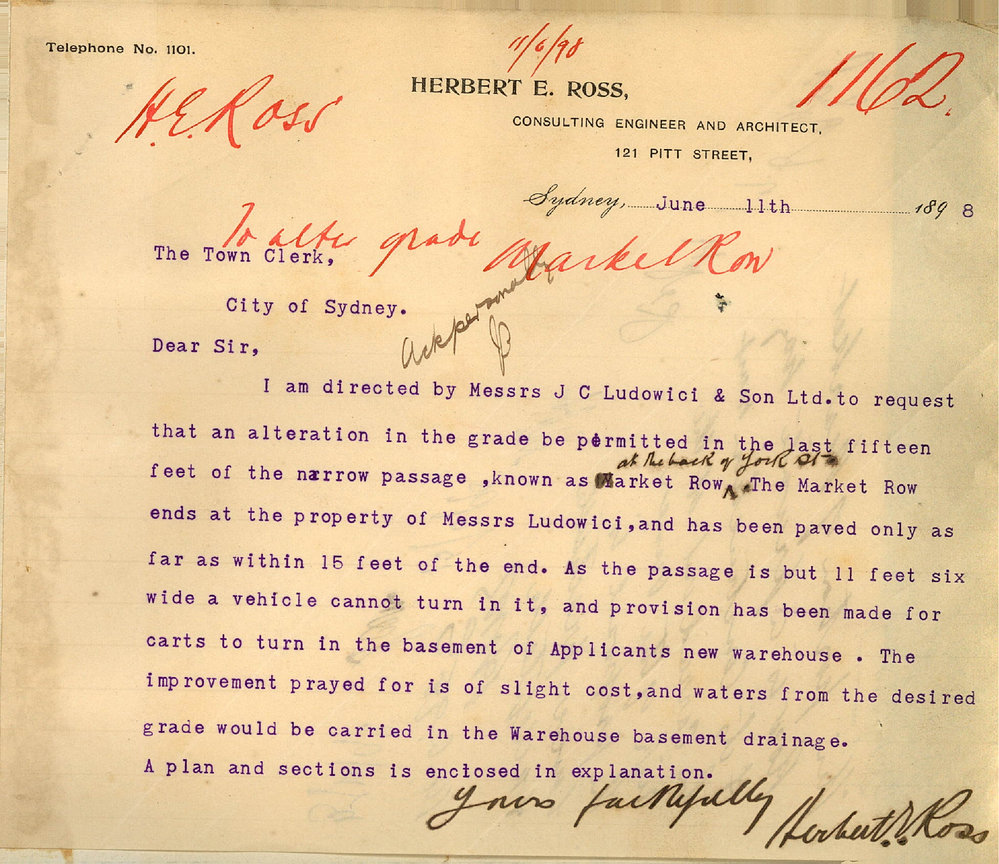 Telephone No. 1101.
11/6/98
HERBERT E. ROSS,
1162.
H.E. Ross
CONSULTING ENGINEER AND ARCHITECT,
121 PITT STREET,
Sydney, June 11th 1898
To alter grade Market Row
The Town Clerk,
City of Sydney.
Ack personally
Dear Sir,
I am directed by Messrs J C Ludowici & Son Ltd.to request
that an alteration in the grade be permitted in the last fifteen
at the back of York St
feet of the narrow passage ,known as Market Row. The Market Row
ends at the property of Messrs Ludowici,and has been paved only as
far as within 15 feet of the end. As the passage is but 11 feet six
wide a vehicle cannot turn in it, and provision has been made for
carts to turn in the basement of Applicants new warehouse . The
improvement prayed for is of slight cost,and waters from the desired
grade would be carried in the Warehouse basement drainage.
A plan and sections is enclosed in explanation.
Yours faithfully
Herbert E. Ross